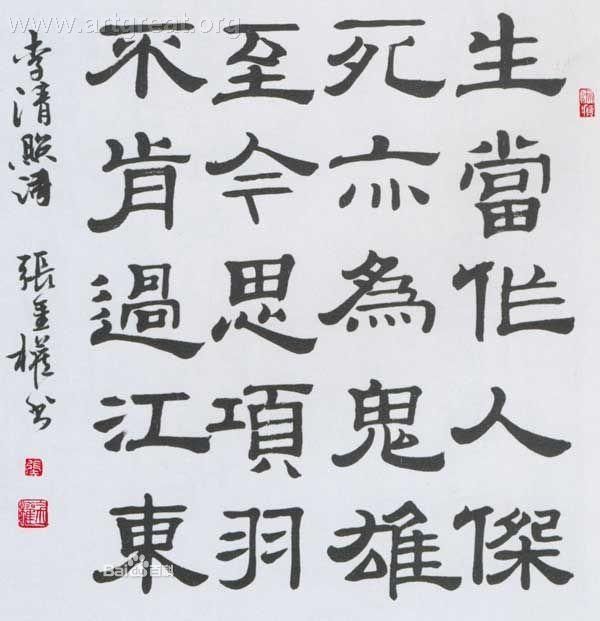 www.artgreat.org
生當作人傑
死亦為鬼雄
至今思項羽
不肯過江東
李清照詩
張 權书
Bai百科